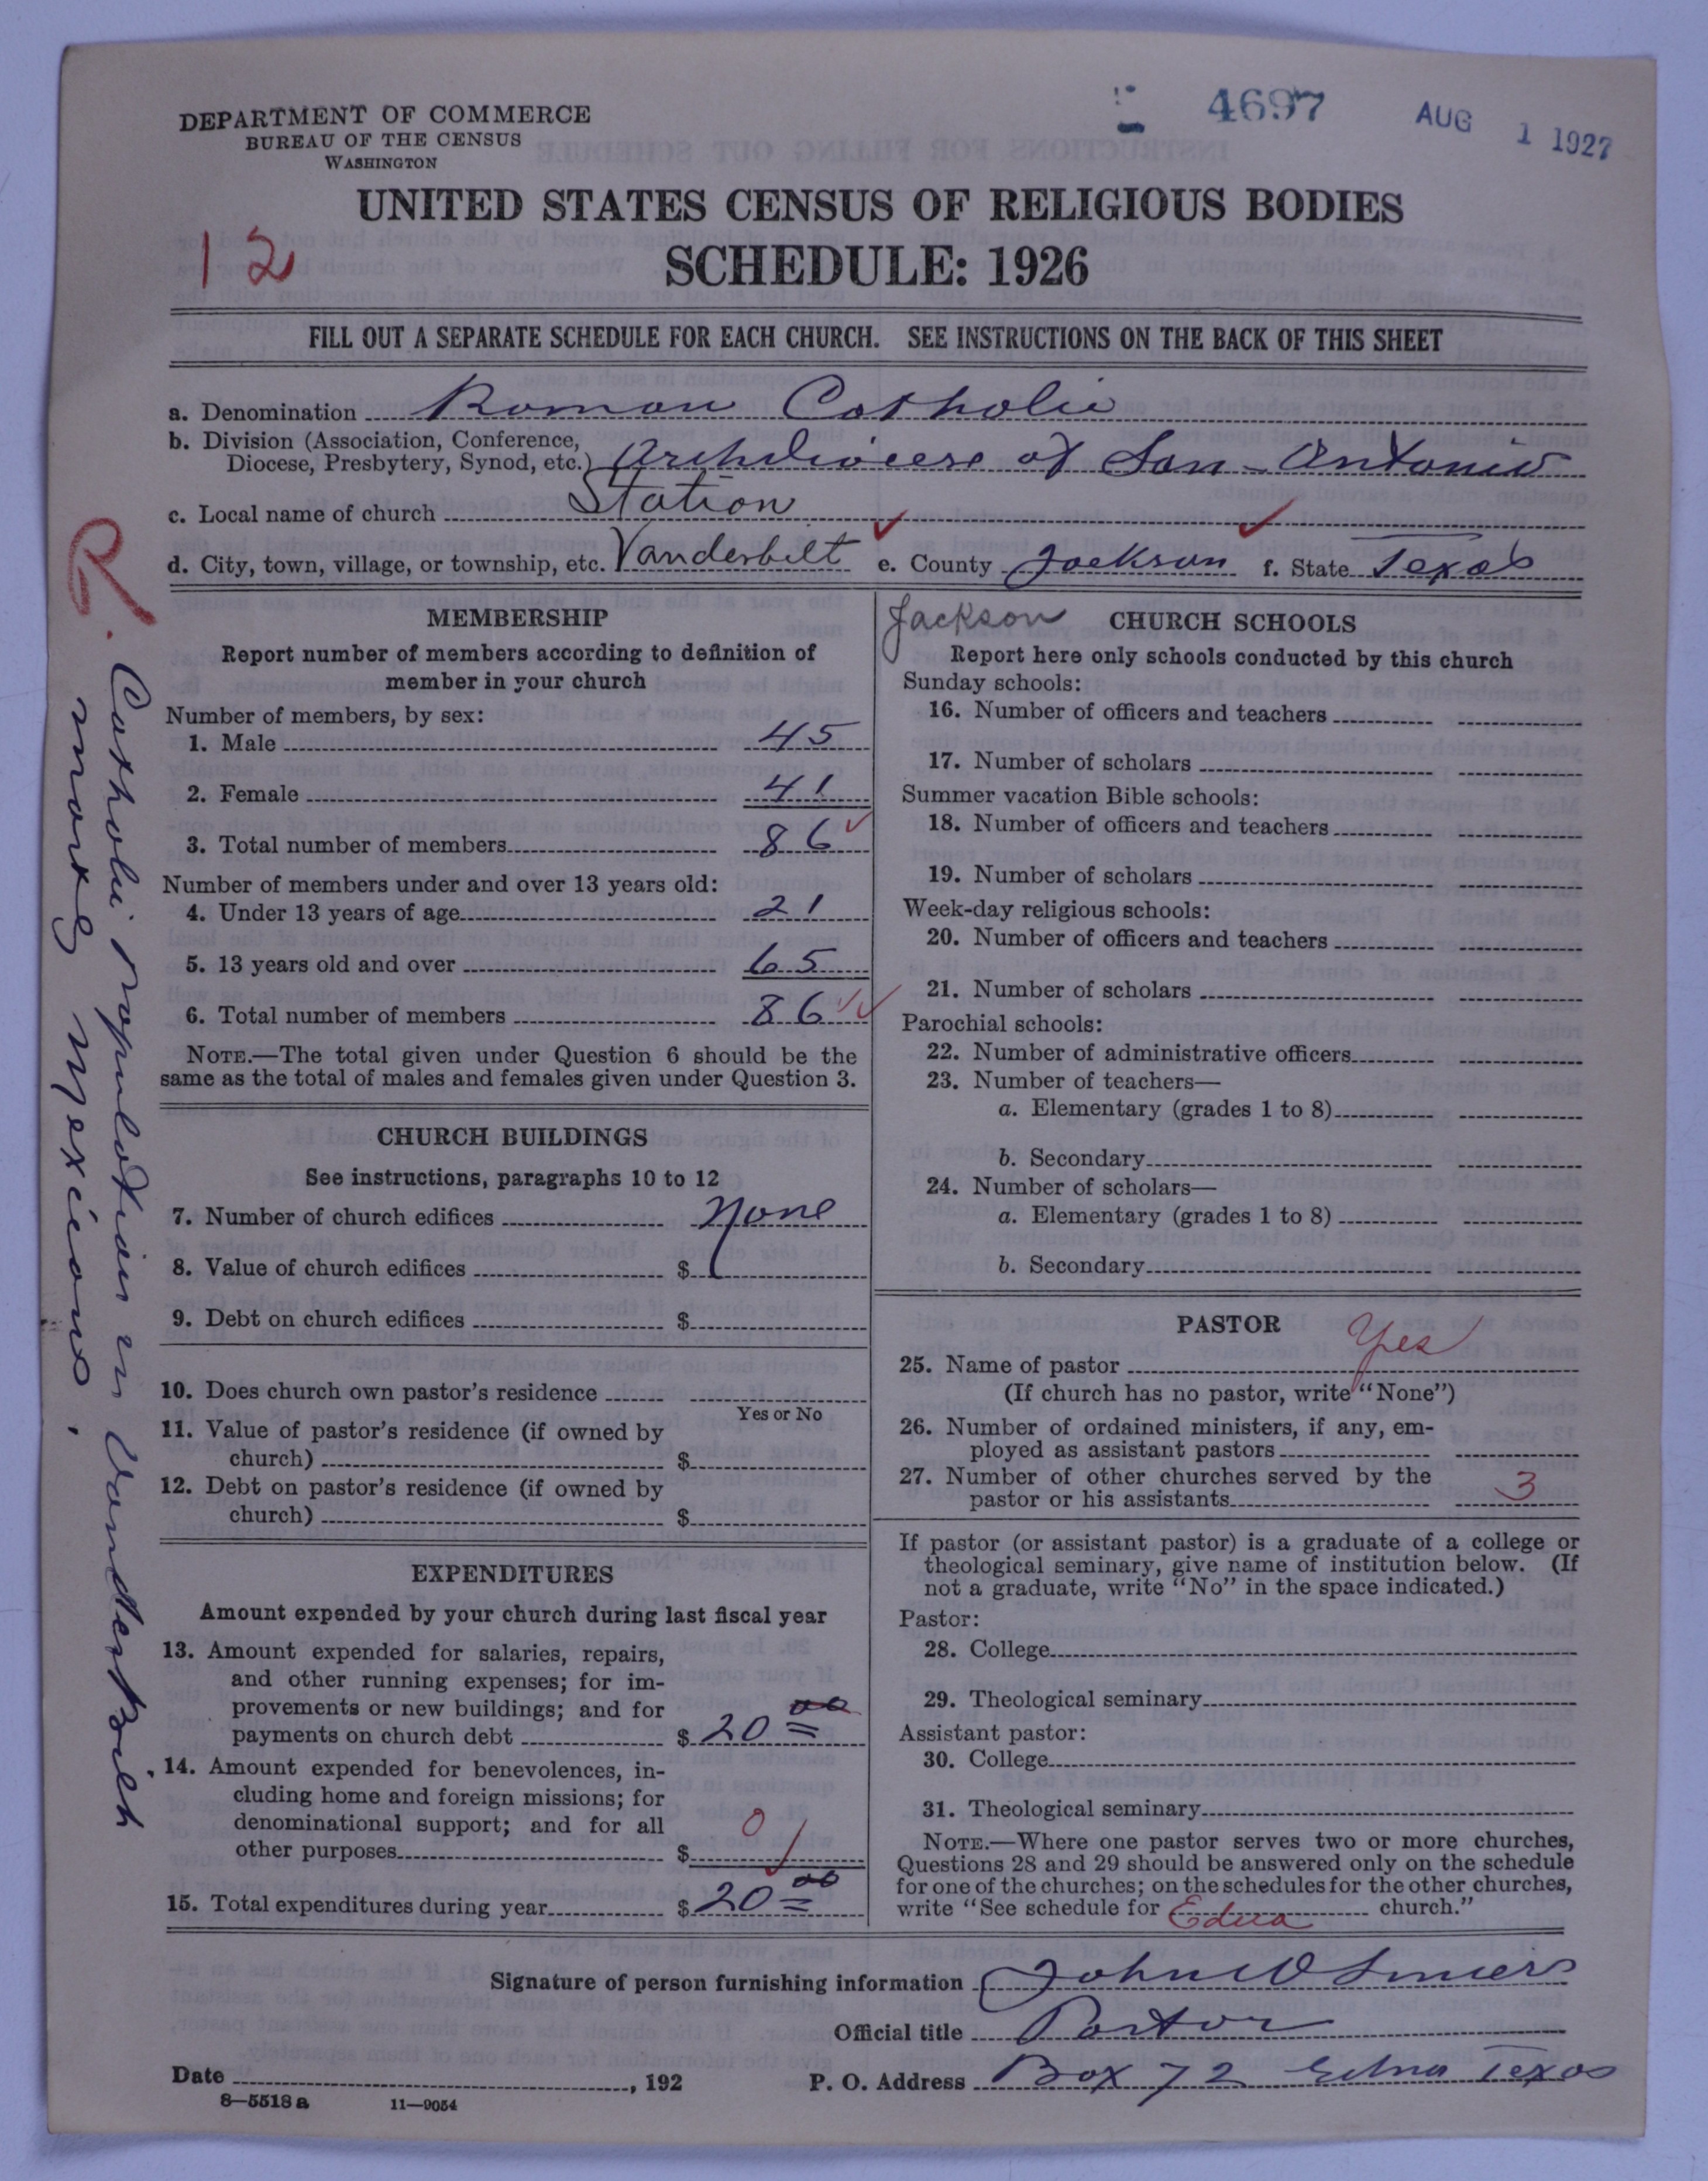 4697 AUG 1 1927
DEPARTMENT OF COMMERCE
BUREAU OF THE CENSUS
WASHINGTON
UNITED STATES CENSUS OF RELIGIOUS BODIES
12
SCHEDULE: 1926
FILL OUT A SEPARATE SCHEDULE FOR EACH CHURCH. SEE INSTRUCTIONS ON THE BACK OF THIS SHEET
a. Denomination Roman Catholic
b. Division (Association, Conference,
Diocese, Presbytery, Synod, etc.) Archdiocese of San-Antonio
c. Local name of church Station
d. City, town, village, or township, etc. Vanderbilt e. County Jackson f. State Texas
R.
Catholic population in Vanderbilt
mostly Mexicans.
MEMBERSHIP
Report number of members according to definition of
member in your church
Number of members, by sex:
1. Male 45
2. Female 41
3. Total number of members 86
Number of members under and over 13 years old:
4. Under 13 years of age 21
5. 13 years old and over 65
6. Total number of members 86
NOTE.—The total given under Question 6 should be the
same as the total of males and females given under Question 3.
CHURCH BUILDINGS
See instructions, paragraphs 10 to 12
7. Number of church edifices None
8. Value of church edifices $
9. Debt on church edifices $
10. Does church own pastor's residence
Yes or No
11. Value of pastor's residence (if owned by
church) $
12. Debt on pastor's residence (if owned by
church) $
EXPENDITURES
Amount expended by your church during last fiscal year
13. Amount expended for salaries, repairs,
and other running expenses; for im-
provements or new buildings; and for
payments on church debt $ 20 00
14. Amount expended for benevolences, in-
cluding home and foreign missions; for
denominational support; and for all
other purposes $ 0
15. Total expenditures during year $ 20 00
Jackson CHURCH SCHOOLS
Report here only schools conducted by this church
Sunday schools:
16. Number of officers and teachers
17. Number of scholars
Summer vacation Bible schools:
18. Number of officers and teachers
19. Number of scholars
Week-day religious schools:
20. Number of officers and teachers
21. Number of scholars
Parochial schools:
22. Number of administrative officers
23. Number of teachers—
a. Elementary (grades 1 to 8)
b. Secondary
24. Number of scholars—
a. Elementary (grades 1 to 8)
b. Secondary
PASTOR
25. Name of pastor Yes
(If church has no pastor, write "None")
26. Number of ordained ministers, if any, em-
ployed as assistant pastors
27. Number of other churches served by the
pastor or his assistants 3
If pastor (or assistant pastor) is a graduate of a college or
theological seminary, give name of institution below. (If
not a graduate, write "No" in the space indicated.)
Pastor:
28. College
29. Theological seminary
Assistant pastor:
30. College
31. Theological seminary
NOTE.—Where one pastor serves two or more churches,
Questions 28 and 29 should be answered only on the schedule
for one of the churches; on the schedules for the other churches,
write "See schedule for Edna church."
Signature of person furnishing information John W
Official title Pastor
Date , 192 P. O. Address Box 72 Edna Texas
8—5518 a 11—9054